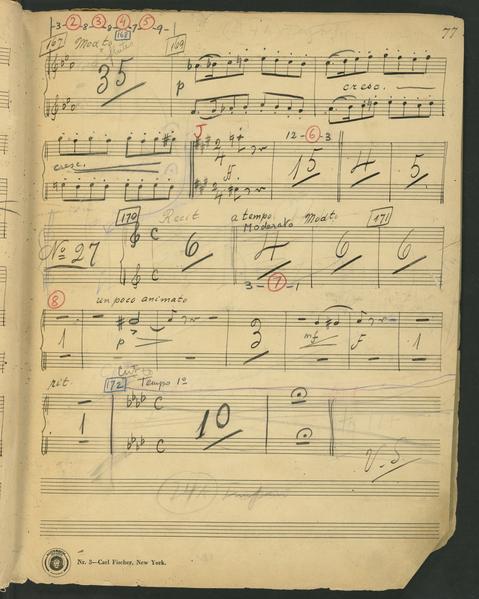 -3-②-8-③-8-④-7-⑤-9-
77
167 Modto 168 169
35 p cresc.
cresc. J 12-⑥-3
2 4 ff. 15 4 5
170 Recit a tempo Moderato Modto 171
No 27 C 6 4 6 6
3-⑦-1
⑧ un poco animato
1 p 3 mf f 1
rit. 172 Tempo 1o
1 C 10
V.S.
Nr. 3—Carl Fischer, New York.